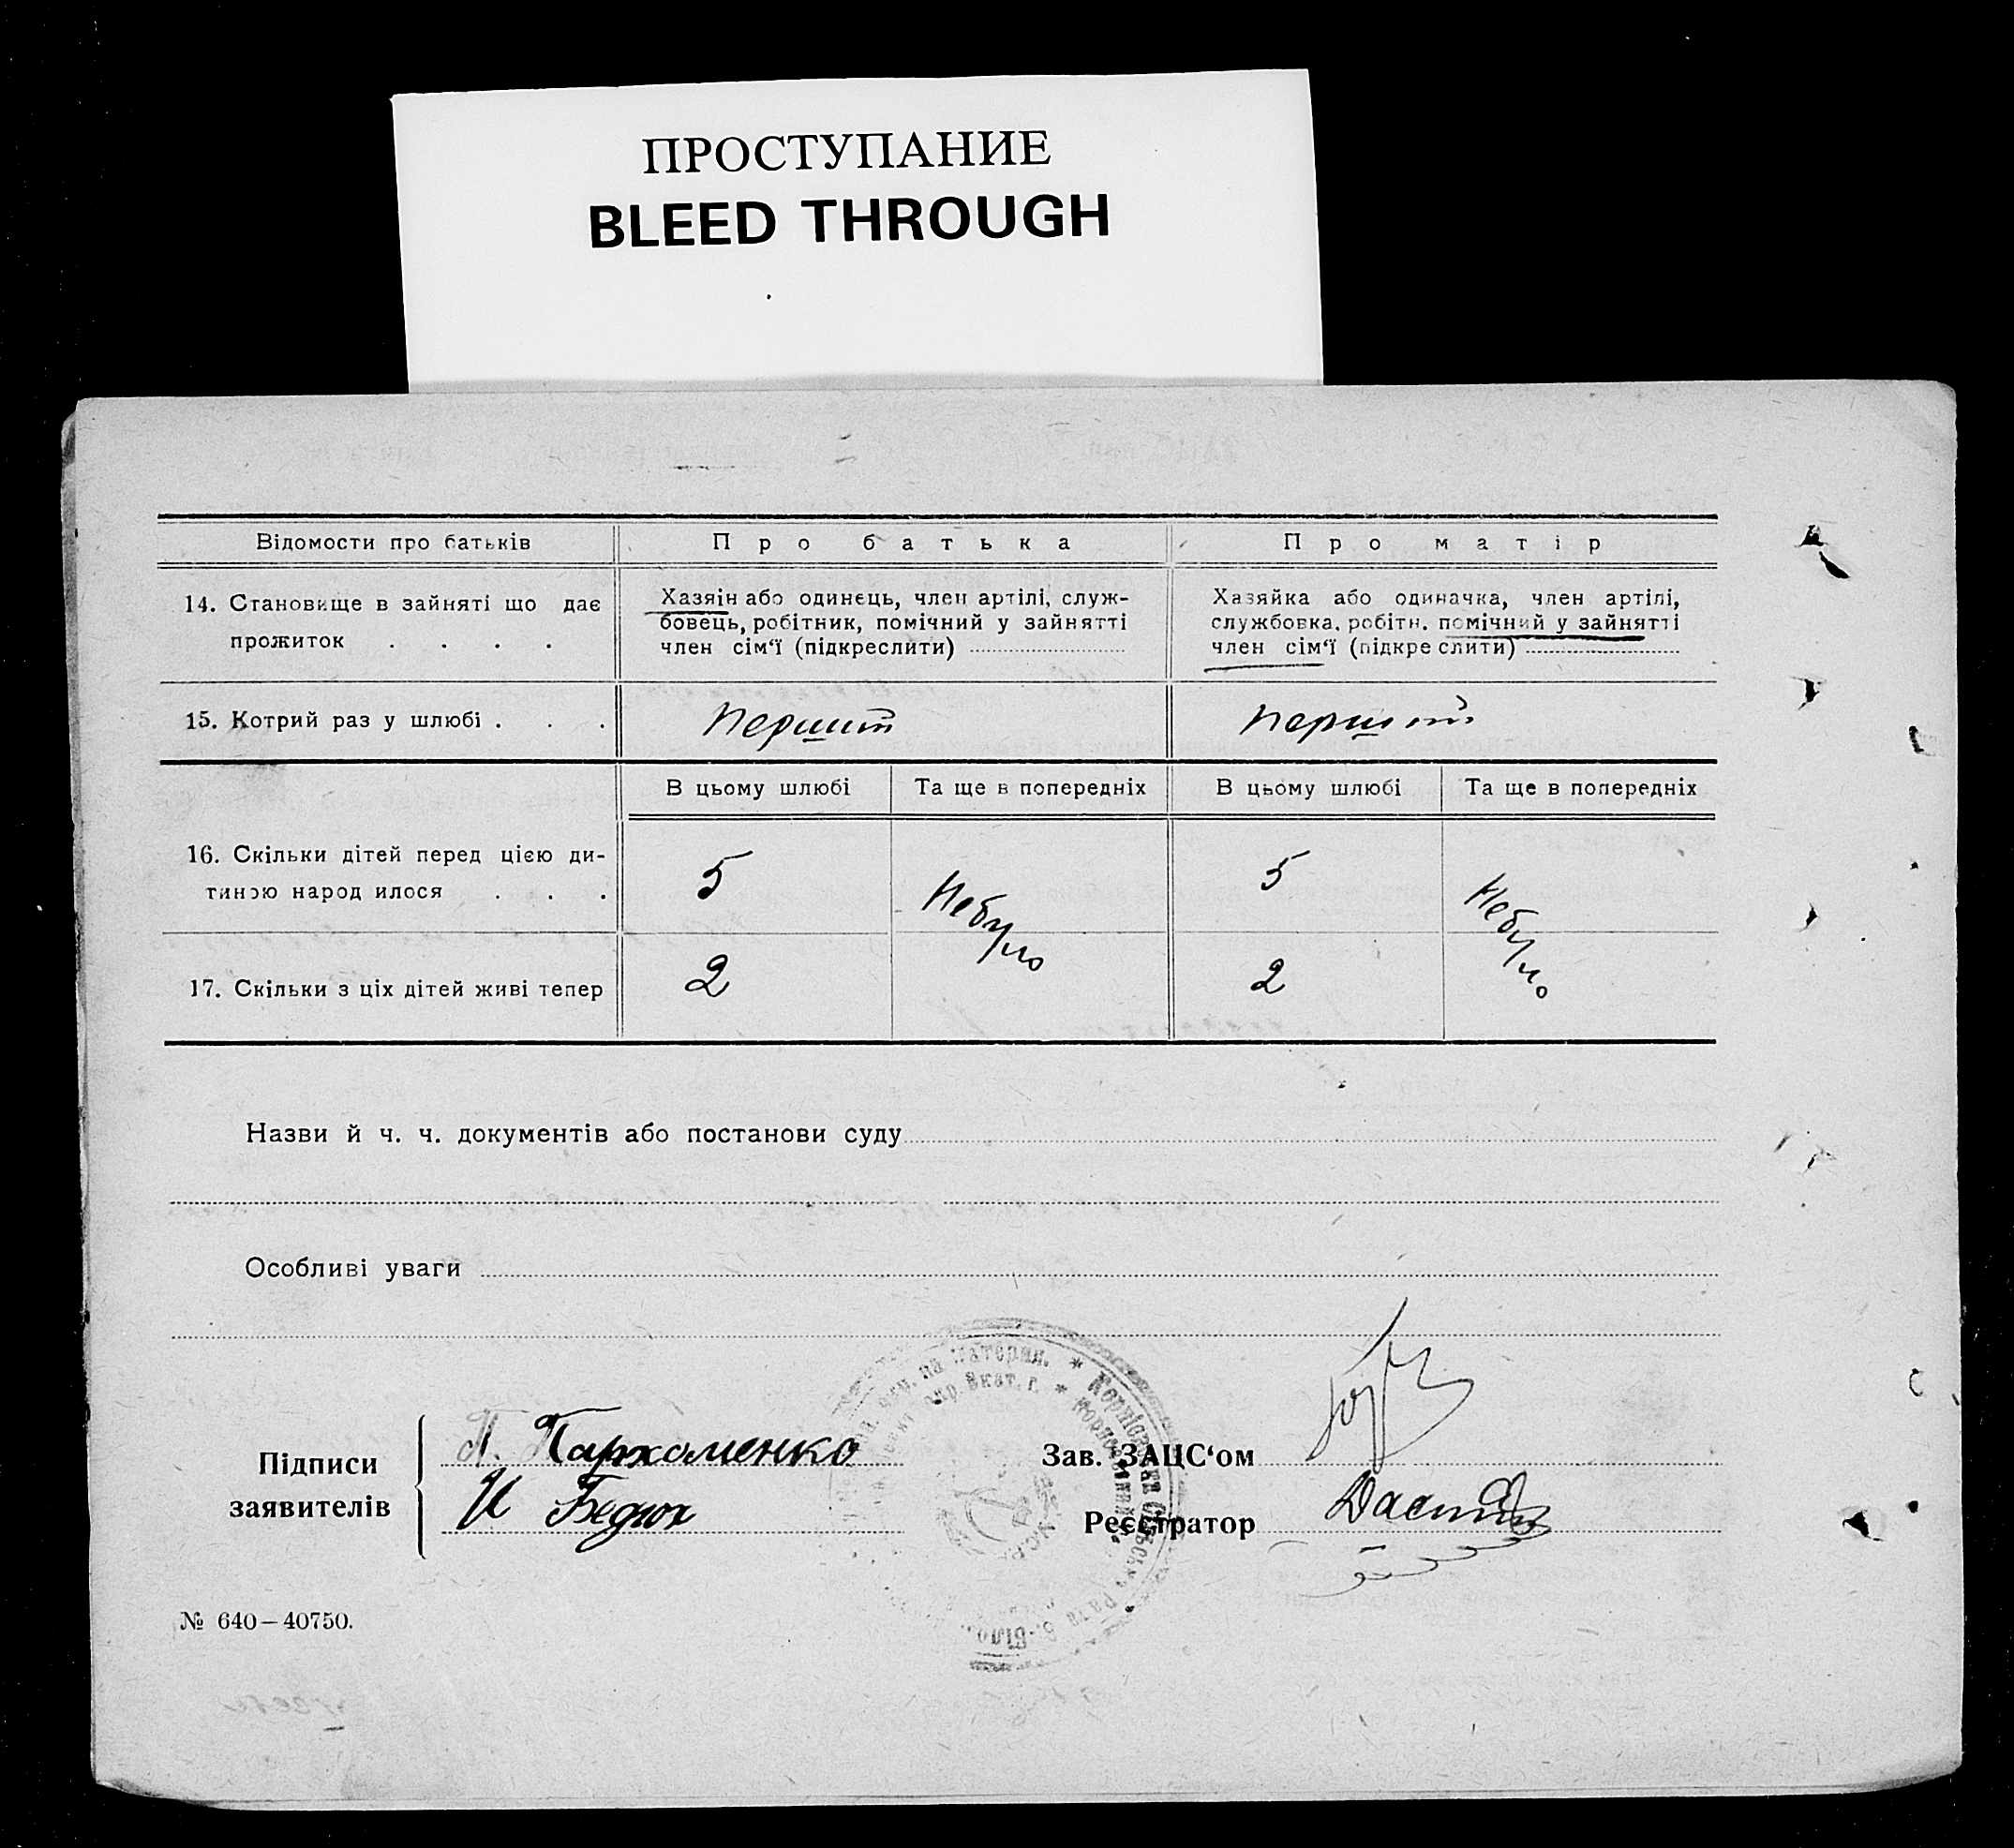 ПРОСТУПАНИЕ
BLEED THROUGH
Відомости про батьків
Про батька
Про матір
14. Становище в зайняті що дає
прожиток . . . .
Хазяін або одинець, член артілі, служ-
бовець, робітник, помічний у зайнятті
член сім‘ї (підкреслити)
Хазяйка або одиначка, член артілі,
службовка, робітн. помічний у зайнятті
член сім‘ї (підкреслити)
15. Котрий раз у шлюбі . . .
першит
першит
В цьому шлюбі
Та ще в попередніх
В цьому шлюбі
Та ще в попередніх
16. Скільки дітей перед цією ди-
тиною народилося . . .
5
Небуло
5
Небуло
17. Скільки з ціх дітей живі тепер
2
2
Назви й ч. ч. документів або постанови суду
Особливі уваги
Підписи
заявителів
П. Пархоменко
И Бедюх
Зав. ЗАЦС‘ом
Реєстратор
№ 640–40750.